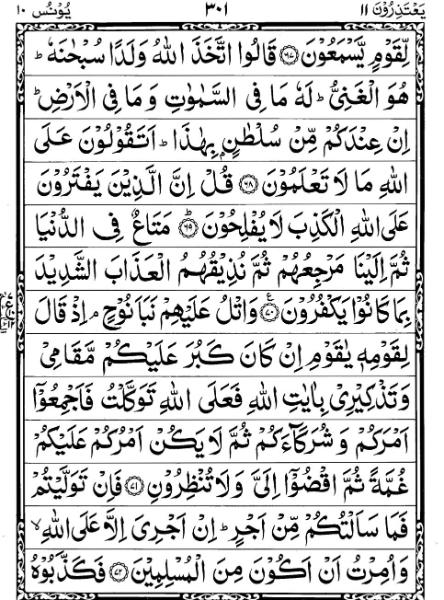 یَعْتَذِرُوْنَ ١١ ٣٠١ یُوْنُس ١٠
لِّقَوْمٍ یَّسْمَعُوْنَ ﴿٦٧﴾ قَالُوا اتَّخَذَ اللّٰهُ وَلَدًا سُبْحٰنَهٗ ؕ
هُوَ الْغَنِیُّ ؕ لَهٗ مَا فِی السَّمٰوٰتِ وَ مَا فِی الْاَرْضِ ؕ
اِنْ عِنْدَكُمْ مِّنْ سُلْطٰنٍۭ بِهٰذَا ؕ اَتَقُوْلُوْنَ عَلَی
اللّٰهِ مَا لَا تَعْلَمُوْنَ ﴿٦٨﴾ قُلْ اِنَّ الَّذِیْنَ یَفْتَرُوْنَ
عَلَی اللّٰهِ الْكَذِبَ لَا یُفْلِحُوْنَ ﴿٦٩﴾ؕ مَتَاعٌ فِی الدُّنْیَا
ثُمَّ اِلَیْنَا مَرْجِعُهُمْ ثُمَّ نُذِیْقُهُمُ الْعَذَابَ الشَّدِیْدَ
بِمَا كَانُوْا یَكْفُرُوْنَ ﴿٧٠﴾ وَاتْلُ عَلَیْهِمْ نَبَاَ نُوْحٍ ۘ اِذْ قَالَ
لِقَوْمِهٖ یٰقَوْمِ اِنْ كَانَ كَبُرَ عَلَیْكُمْ مَّقَامِیْ
وَ تَذْكِیْرِیْ بِاٰیٰتِ اللّٰهِ فَعَلَی اللّٰهِ تَوَكَّلْتُ فَاَجْمِعُوْۤا
اَمْرَكُمْ وَ شُرَكَآءَكُمْ ثُمَّ لَا یَكُنْ اَمْرُكُمْ عَلَیْكُمْ
غُمَّةً ثُمَّ اقْضُوْۤا اِلَیَّ وَ لَا تُنْظِرُوْنِ ﴿٧١﴾ فَاِنْ تَوَلَّیْتُمْ
فَمَا سَاَلْتُكُمْ مِّنْ اَجْرٍ ؕ اِنْ اَجْرِیَ اِلَّا عَلَی اللّٰهِ ۙ
وَ اُمِرْتُ اَنْ اَكُوْنَ مِنَ الْمُسْلِمِیْنَ ﴿٧٢﴾ فَكَذَّبُوْهُ